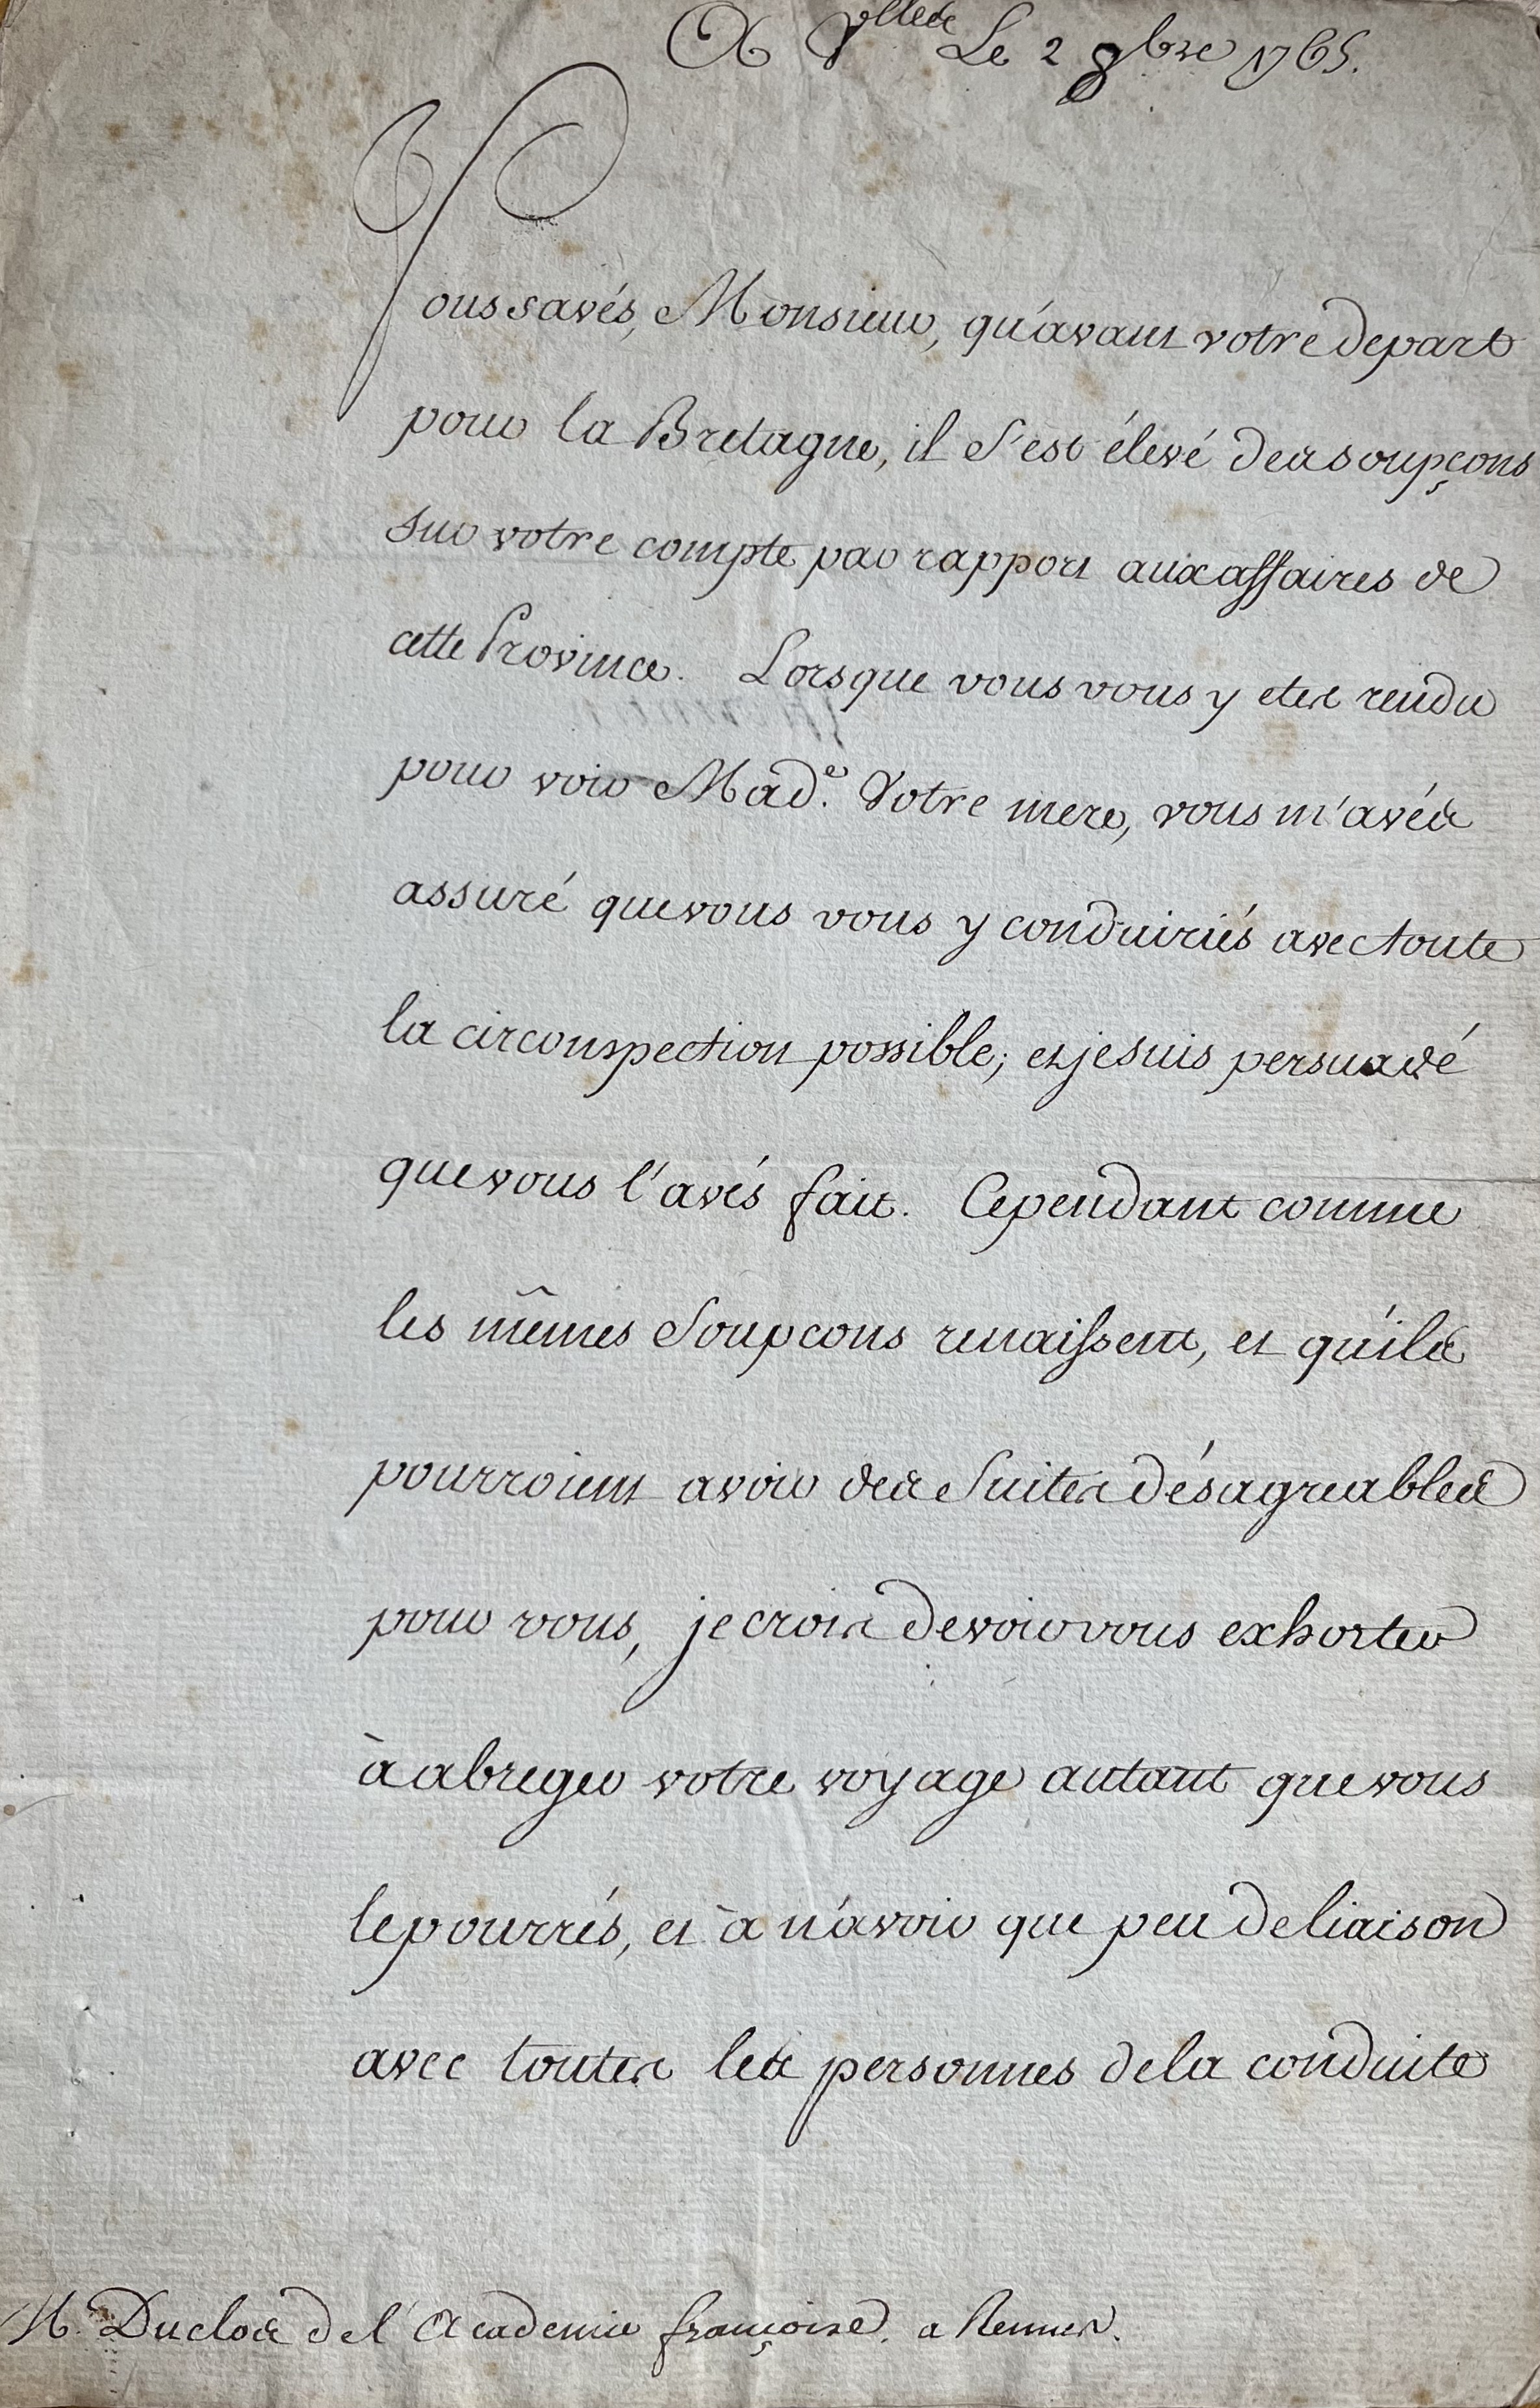 A Vlles Le 2 8bre 1765.
Vous savés, Monsieur, qu'avant votre depart
pour la Bretagne, il s'est élevé des soupçons
sur votre compte par rapport aux affaires de
cette Province. Lorsque vous vous y etes rendu
pour voir Made. Votre mere, vous m'avés
assuré que vous vous y conduiriés avec toute
la circonspection possible; et je suis persuadé
que vous l'avés fait. Cependant comme
les mêmes Soupcons renaissent, et qu'ils
pourroient avoir des Suites désagreables
pour vous, je crois devoir vous exhorter
à abreger votre voyage autant que vous
le pourrés, et à n'avoir que peu de liaison
avec toutes les personnes de la conduite
M. Duclos de l'Academie françoise. a Rennes.